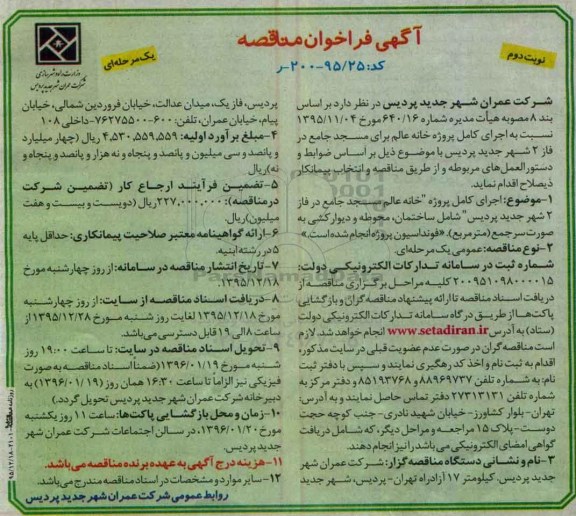 آگهی فراخوان مناقصه
کد: ۹۵/۲۵-۲۰۰-ر
نوبت دوم
یک مرحله‌ای
وزارت راه و شهرسازی
شرکت عمران شهر جدید پردیس
شرکت عمران شهر جدید پردیس در نظر دارد بر اساس
بند ۸ مصوبه هیأت مدیره شماره ۶۴۰/۱۶ مورخ ۱۳۹۵/۱۱/۰۴
نسبت به اجرای کامل پروژه خانه عالم برای مسجد جامع در
فاز ۲ شهر جدید پردیس با موضوع ذیل بر اساس ضوابط و
دستورالعمل‌های مربوطه و از طریق مناقصه و انتخاب پیمانکار
ذیصلاح اقدام نماید.
۱-موضوع: اجرای کامل پروژه "خانه عالم مسجد جامع در فاز
۲ شهر جدید پردیس" شامل ساختمان، محوطه و دیوارکشی به
صورت سرجمع (مترمربع). «فونداسیون پروژه انجام شده است.»
۲-نوع مناقصه: عمومی یک مرحله‌ای.
شماره ثبت در سامانه تدارکات الکترونیکی دولت:
۲۰۰۹۵۱۰۹۸۰۰۰۰۱۵ کلیه مراحل برگزاری مناقصه از
دریافت اسناد مناقصه تا ارائه پیشنهاد مناقصه گران و بازگشایی
پاکت‌ها از طریق درگاه سامانه تدارکات الکترونیکی دولت
(ستاد) به آدرس www.setadiran.ir انجام خواهد شد. لازم
است مناقصه گران در صورت عدم عضویت قبلی در سایت مذکور،
اقدام به ثبت نام و اخذ کد رهگیری نمایند و سپس با دفتر ثبت
نام: به شماره تلفن ۸۸۹۶۹۷۳۷ و ۸۵۱۹۳۷۶۸ و دفتر مرکز به
شماره تلفن ۲۷۳۱۳۱۳۱ دفتر تماس حاصل نمایند و به آدرس:
تهران- بلوار کشاورز- خیابان شهید نادری- جنب کوچه حجت
دوست- پلاک ۱۵ مراجعه و مراحل دیگر، که شامل دریافت
گواهی امضای الکترونیکی می باشد را نیز انجام دهند.
۳-نام و نشانی دستگاه مناقصه گزار: شرکت عمران شهر
جدید پردیس. کیلومتر ۱۷ آزادراه تهران - پردیس، شهر جدید
پردیس، فاز یک، میدان عدالت، خیابان فروردین شمالی، خیابان
پیام، خیابان عمران، تلفن: ۶۰۰-۷۶۲۷۵۵۰۰-داخلی ۱۰۸
۴-مبلغ برآورد اولیه: ۴,۵۳۰,۵۵۹,۵۵۹ ریال (چهار میلیارد
و پانصد و سی میلیون و پانصد و پنجاه و نه هزار و پانصد و پنجاه و
نه) ریال
۵-تضمین فرآیند ارجاع کار (تضمین شرکت
در مناقصه): ۲۲۷,۰۰۰,۰۰۰ ریال (دویست و بیست و هفت
میلیون) ریال.
۶-ارائه گواهینامه معتبر صلاحیت پیمانکاری: حداقل پایه
۵ در رشته ابنیه.
۷-تاریخ انتشار مناقصه در سامانه: از روز چهارشنبه مورخ
۱۳۹۵/۱۲/۱۸.
۸-دریافت اسناد مناقصه از سایت: از روز چهارشنبه
مورخ ۱۳۹۵/۱۲/۱۸ لغایت روز شنبه مورخ ۱۳۹۵/۱۲/۲۸ از
ساعت ۸ الی ۱۹ قابل دسترسی می باشد.
۹-تحویل اسناد مناقصه در سایت: تا ساعت ۱۹:۰۰ روز
شنبه مورخ ۱۳۹۶/۰۱/۱۹ (ضمناً اسناد مناقصه به صورت
فیزیکی نیز الزاماً تا ساعت ۱۶:۳۰ همان روز (۱۳۹۶/۰۱/۱۹) به
دبیرخانه شرکت عمران شهر جدید پردیس تحویل گردد.)
۱۰-زمان و محل بازگشایی پاکت‌ها: ساعت ۱۱ روز یکشنبه
مورخ ۱۳۹۶/۰۱/۲۰، در سالن اجتماعات شرکت عمران شهر
جدید پردیس.
۱۱-هزینه درج آگهی به عهده برنده مناقصه می باشد.
۱۲-سایر موارد و مشخصات در اسناد مناقصه مندرج می باشد.
روابط عمومی شرکت عمران شهر جدید پردیس